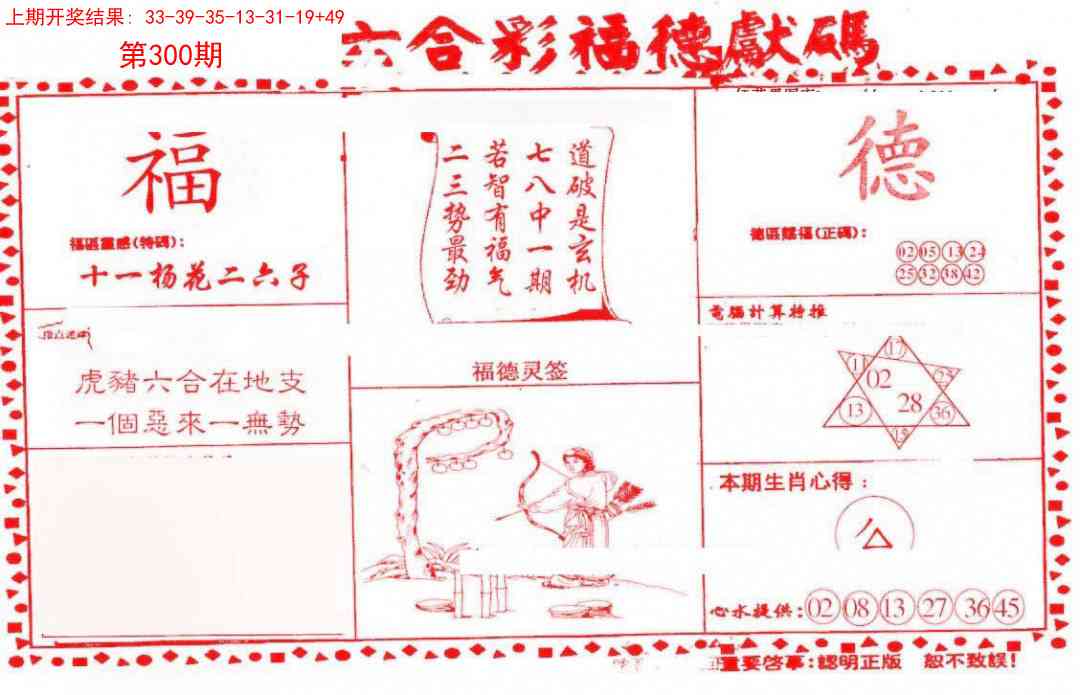 上期开奖结果: 33-39-35-13-31-19+49
第300期
六合彩福德獻碼
福
福區靈感(特碼):
十一杨花二六子
道破是玄机
七八中一期
若智有福气
二三势最劲
德
德區賜福(正碼):
02 05 13 24
25 32 38 42
虎豬六合在地支
一個惡來一無勢
福德灵签
電腦計算特推
17
11
02
25
13
28
36
15
本期生肖心得:
心水提供:02 08 13 27 36 45
重要啓事:認明正版 恕不致誤!